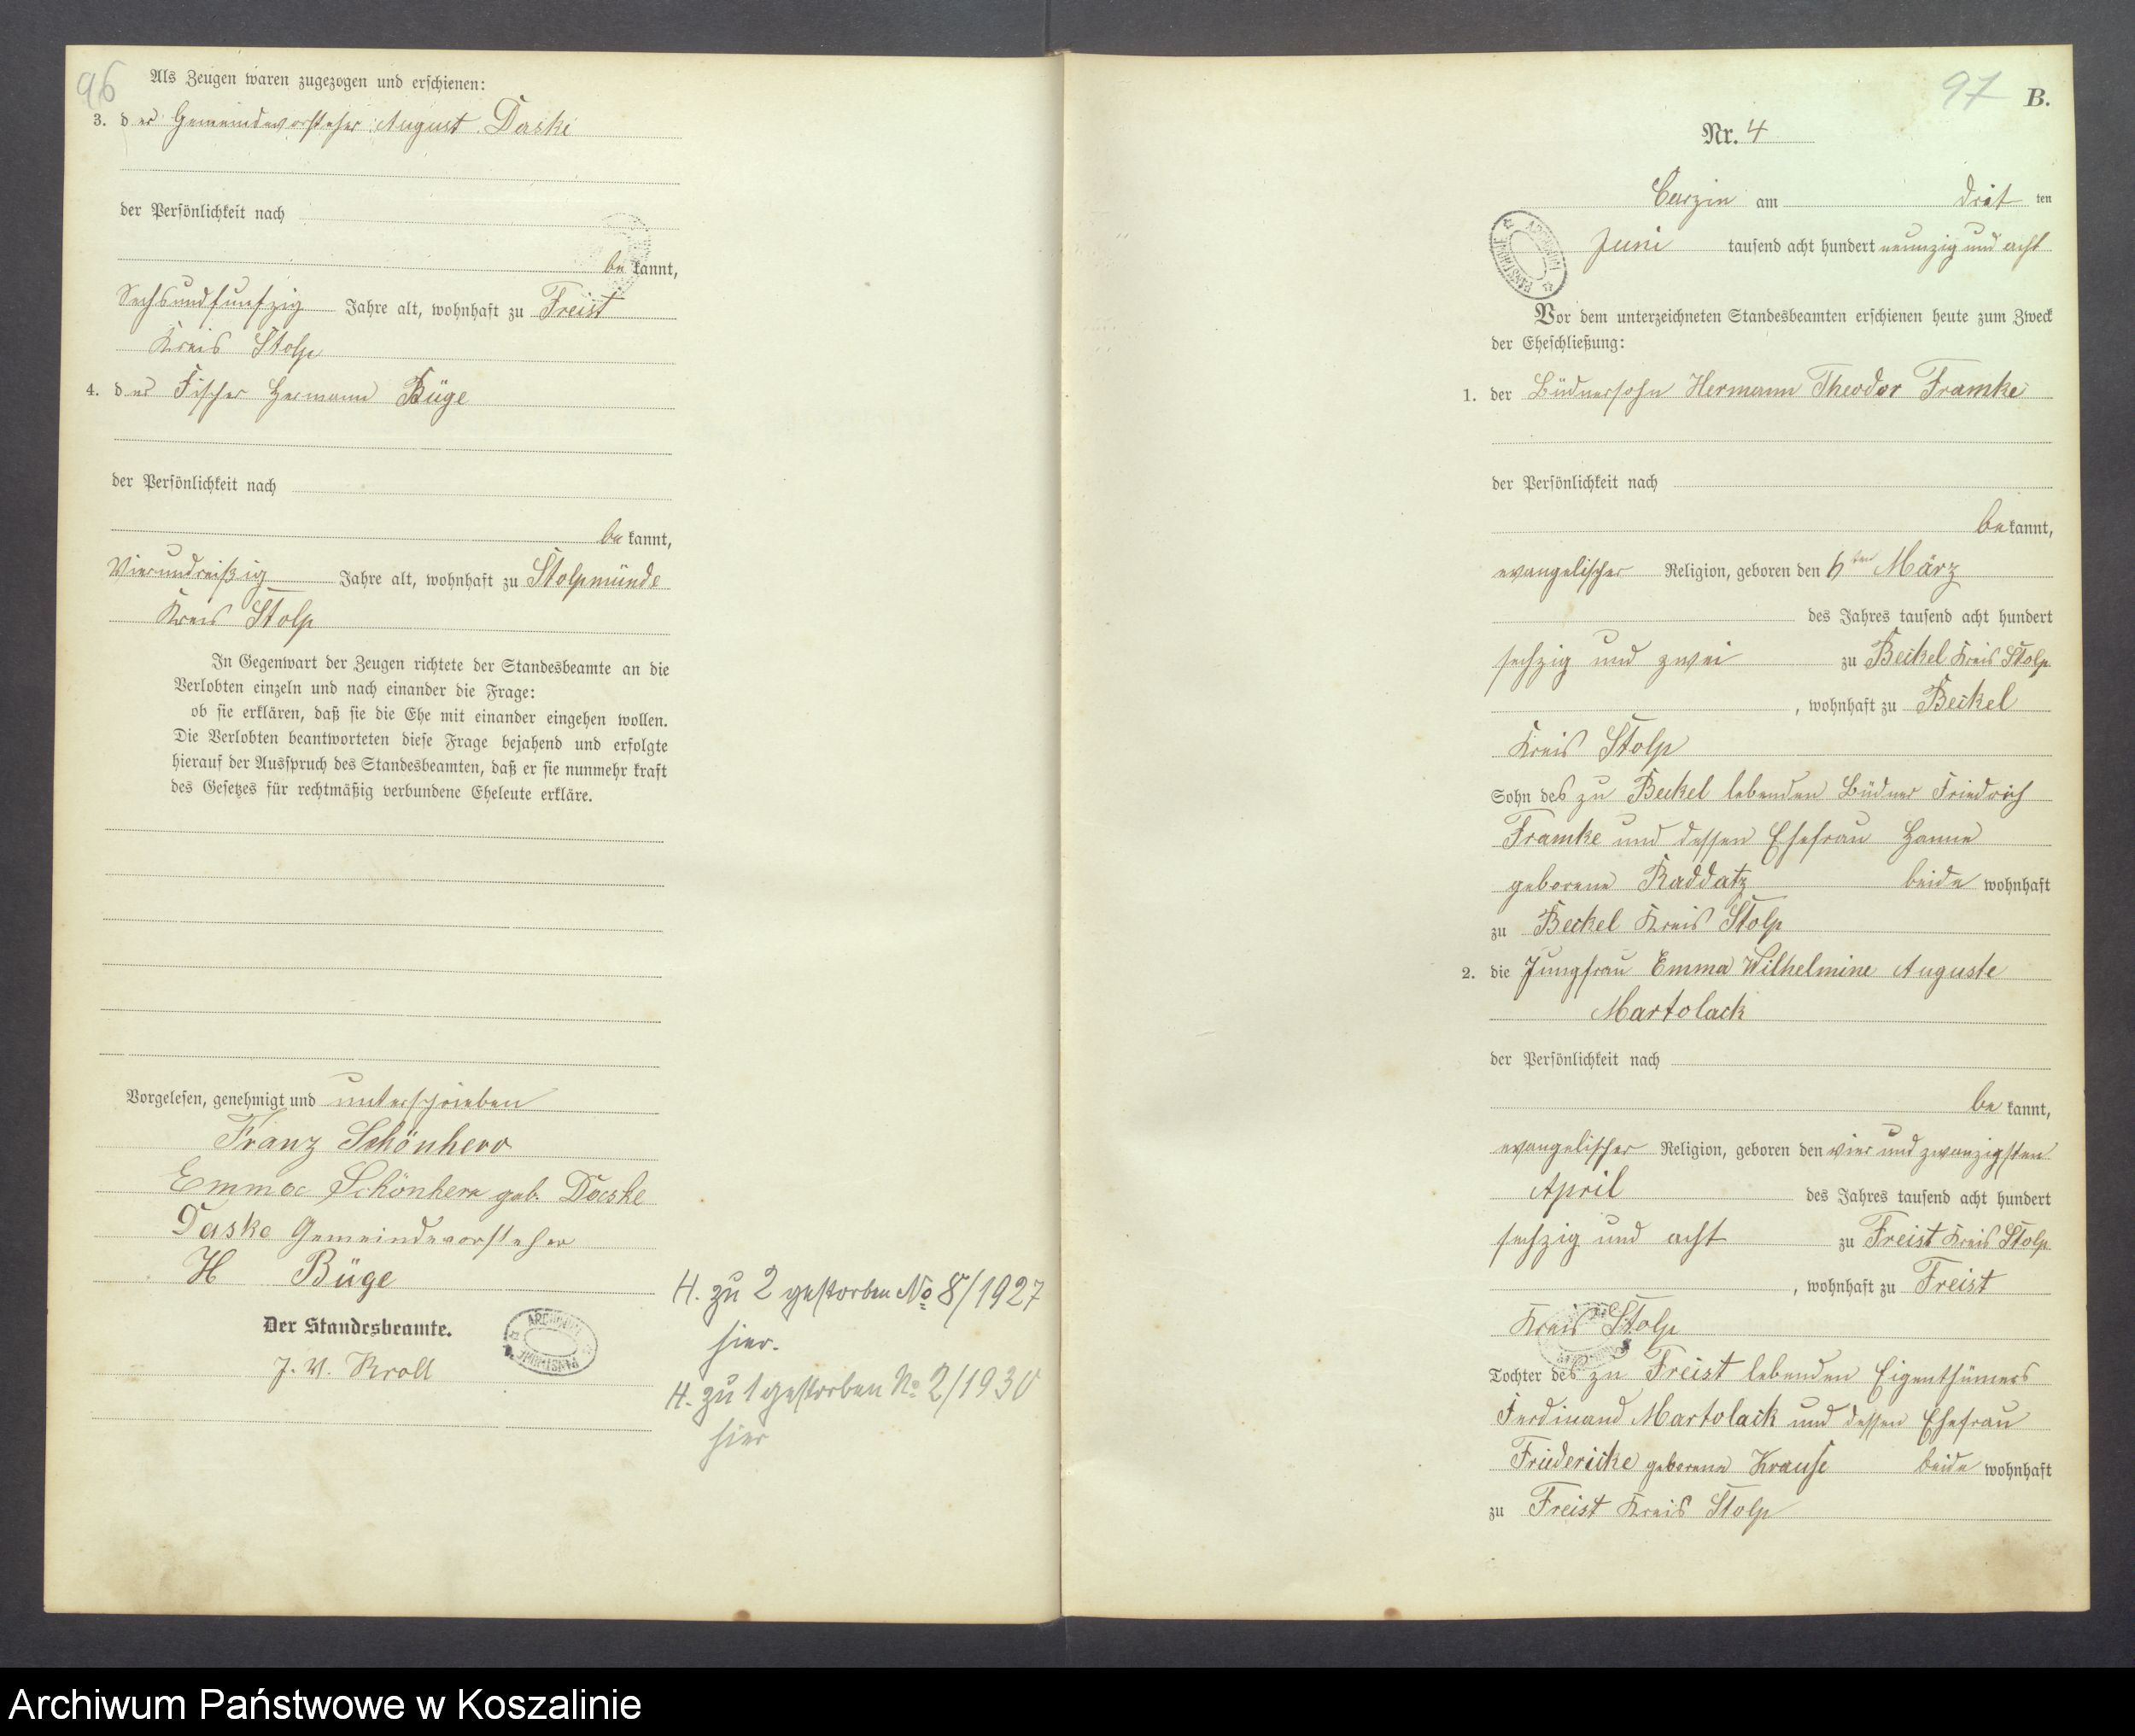 96
Als Zeugen waren zugezogen und erschienen:
3. der Gemeindevorsteher August Daske
der Persönlichkeit nach
bekannt,
Sechsundfunfzig Jahre alt, wohnhaft zu Freist
Kreis Stolp
4. der Fischer Hermann Büge
der Persönlichkeit nach
bekannt,
Vierundreißig Jahre alt, wohnhaft zu Stolpmünde
Kreis Stolp
In Gegenwart der Zeugen richtete der Standesbeamte an die
Verlobten einzeln und nach einander die Frage:
ob sie erklären, daß sie die Ehe mit einander eingehen wollen.
Die Verlobten beantworteten diese Frage bejahend und erfolgte
hierauf der Ausspruch des Standesbeamten, daß er sie nunmehr kraft
des Gesetzes für rechtmäßig verbundene Eheleute erkläre.
Vorgelesen, genehmigt und unterschrieben
Franz Schönherr
Emma Schönherr geb. Daske
Daske Gemeindevorsteher
H Büge
Der Standesbeamte.
J. V. Kroll
H. zu 2 gestorben No 8/1927
hier.
H. zu 1 gestorben No 2/1930
hier
97 B.
Nr. 4
Carzin am drit ten
Juni tausend acht hundert neunzig und acht
Vor dem unterzeichneten Standesbeamten erschienen heute zum Zweck
der Eheschließung:
1. der Büdnersohn Hermann Theodor Framke
der Persönlichkeit nach
bekannt,
evangelischer Religion, geboren den 6ten März
des Jahres tausend acht hundert
sechzig und zwei zu Beckel Kreis Stolp
, wohnhaft zu Beckel
Kreis Stolp
Sohn des zu Beckel lebenden Büdner Friedrich
Framke und dessen Ehefrau Hanne
geborene Raddatz beide wohnhaft
zu Beckel Kreis Stolp
2. die Jungfrau Emma Wilhelmine Auguste
Martolack
der Persönlichkeit nach
bekannt,
evangelischer Religion, geboren den vier und zwanzigsten
April des Jahres tausend acht hundert
sechzig und acht zu Freist Kreis Stolp
, wohnhaft zu Freist
Kreis Stolp
Tochter des zu Freist lebenden Eigenthümers
Ferdinand Martolack und dessen Ehefrau
Friedericke geborene Krause beide wohnhaft
zu Freist Kreis Stolp
Archiwum Państwowe w Koszalinie